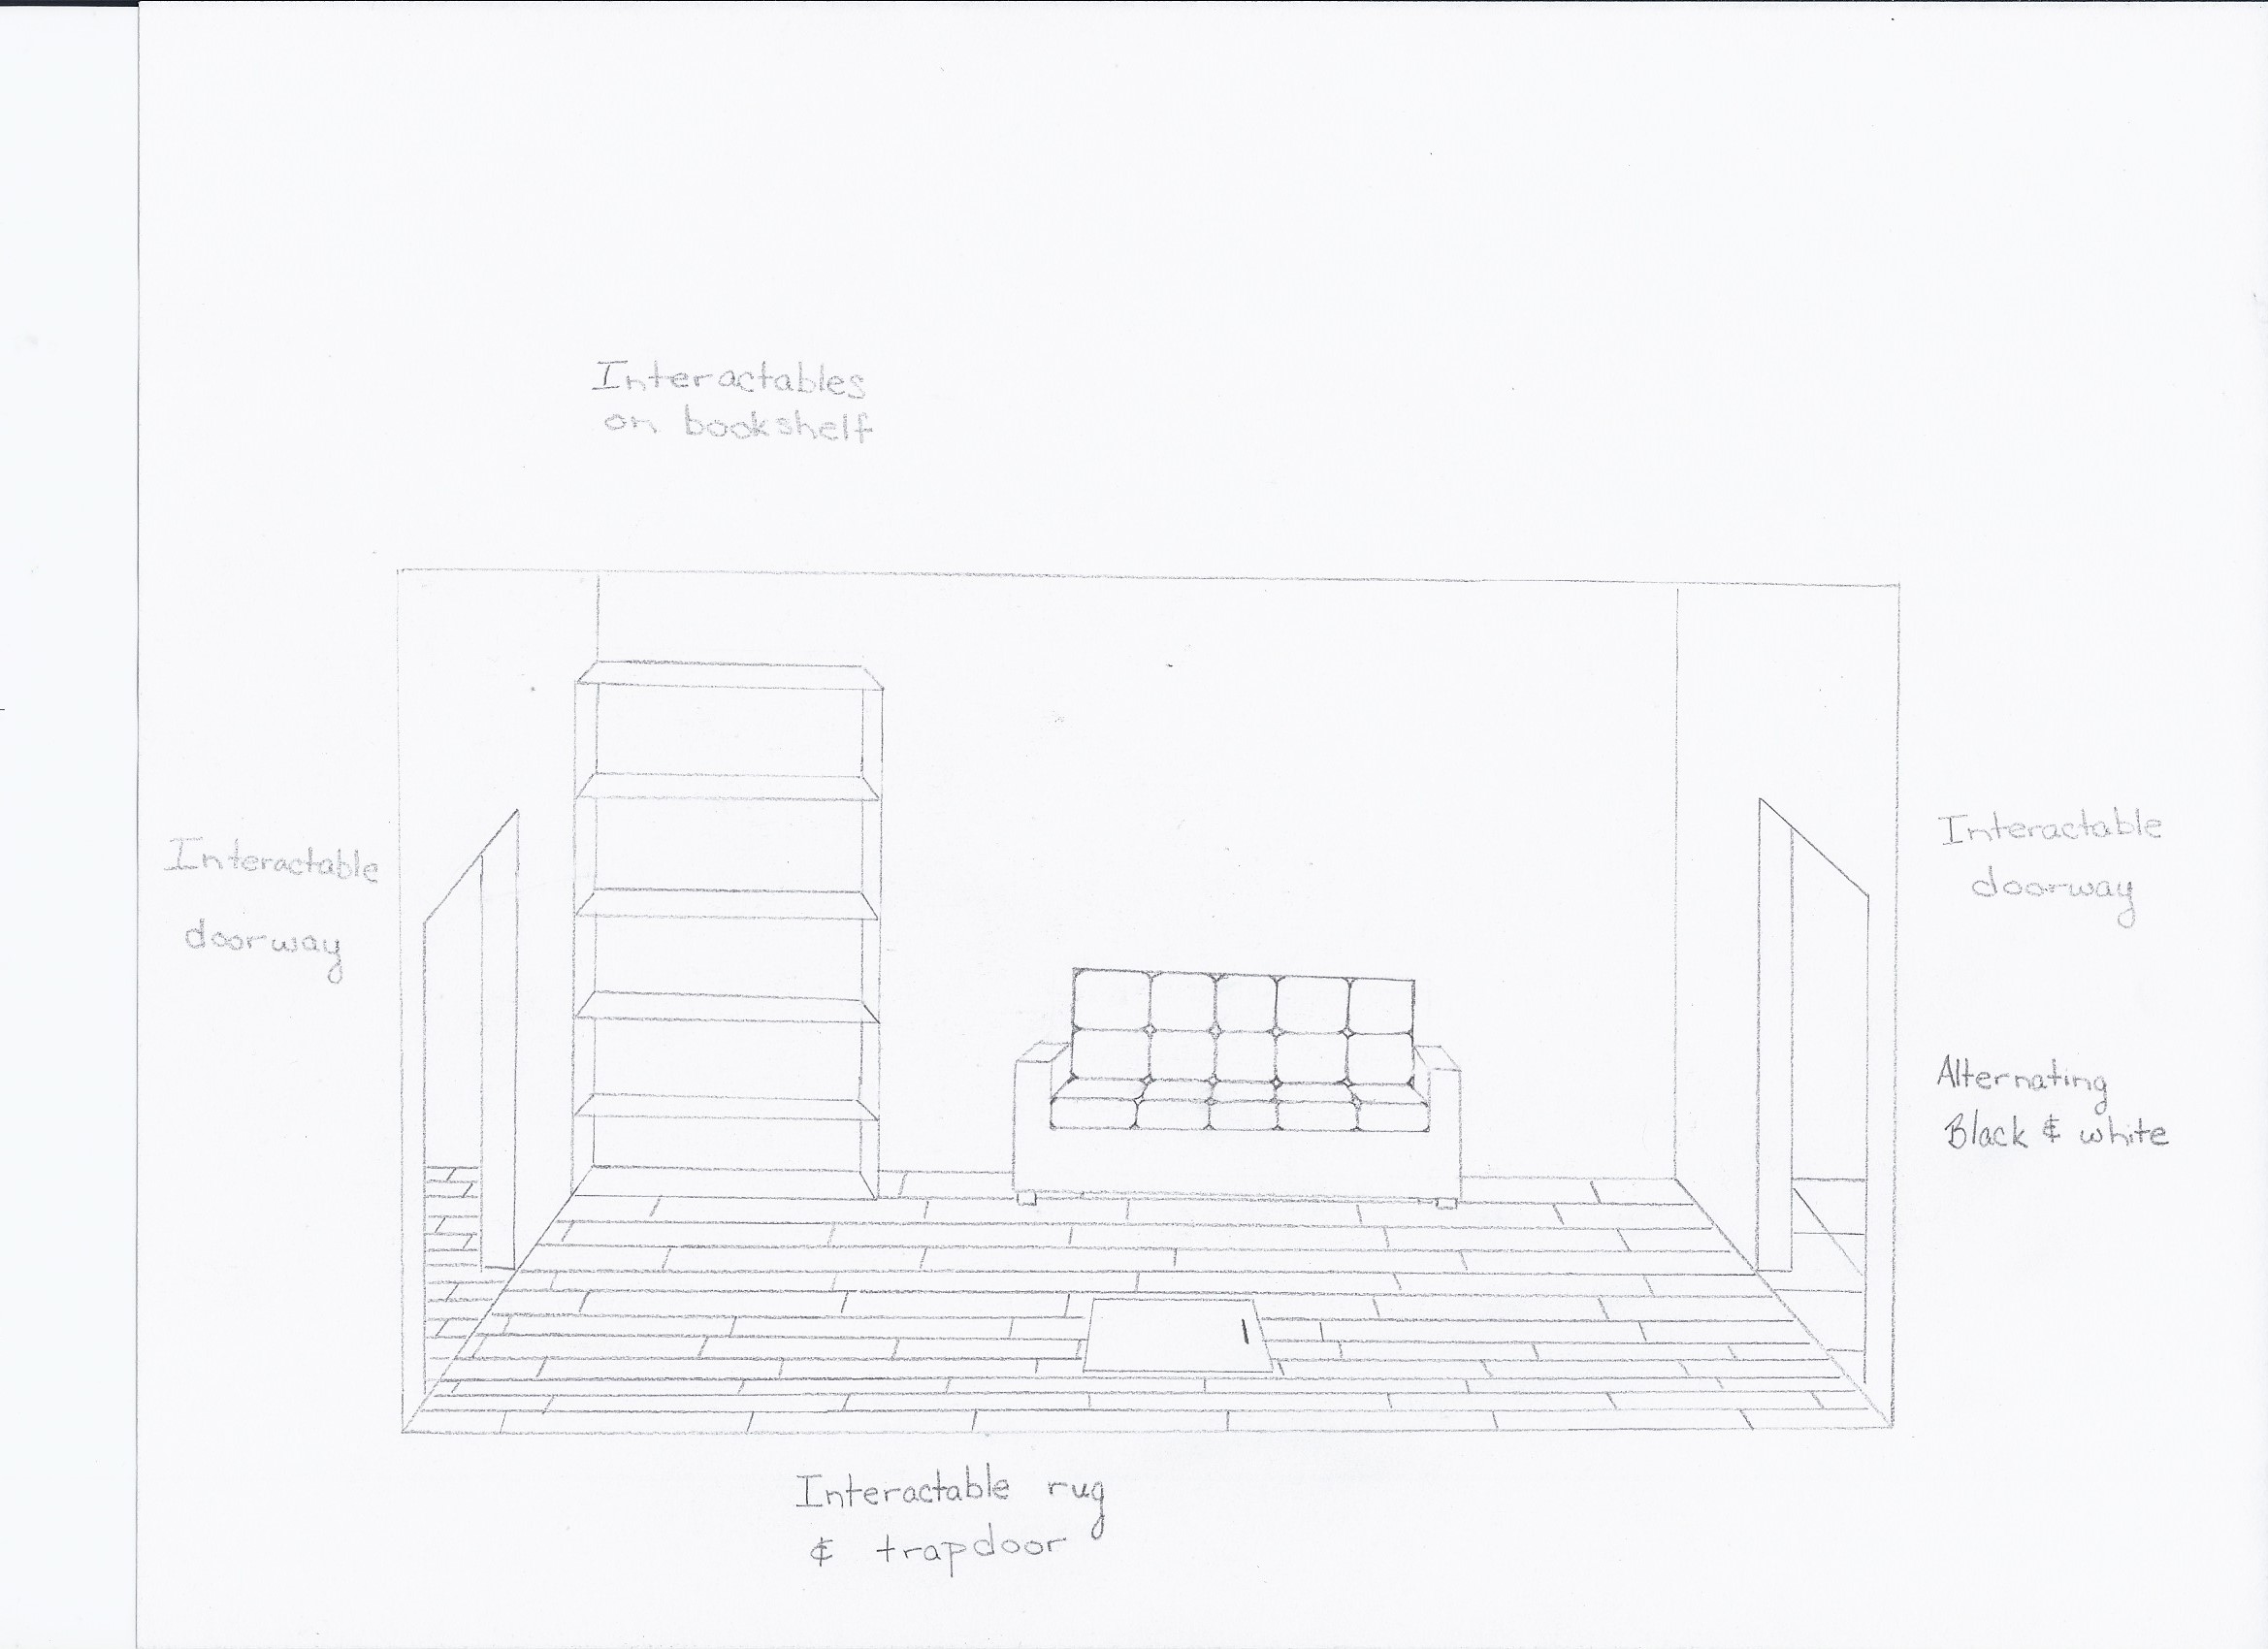 Interactables
on bookshelf
Interactable
doorway
Interactable
doorway
Alternating
Black & white
Interactable rug
& trapdoor